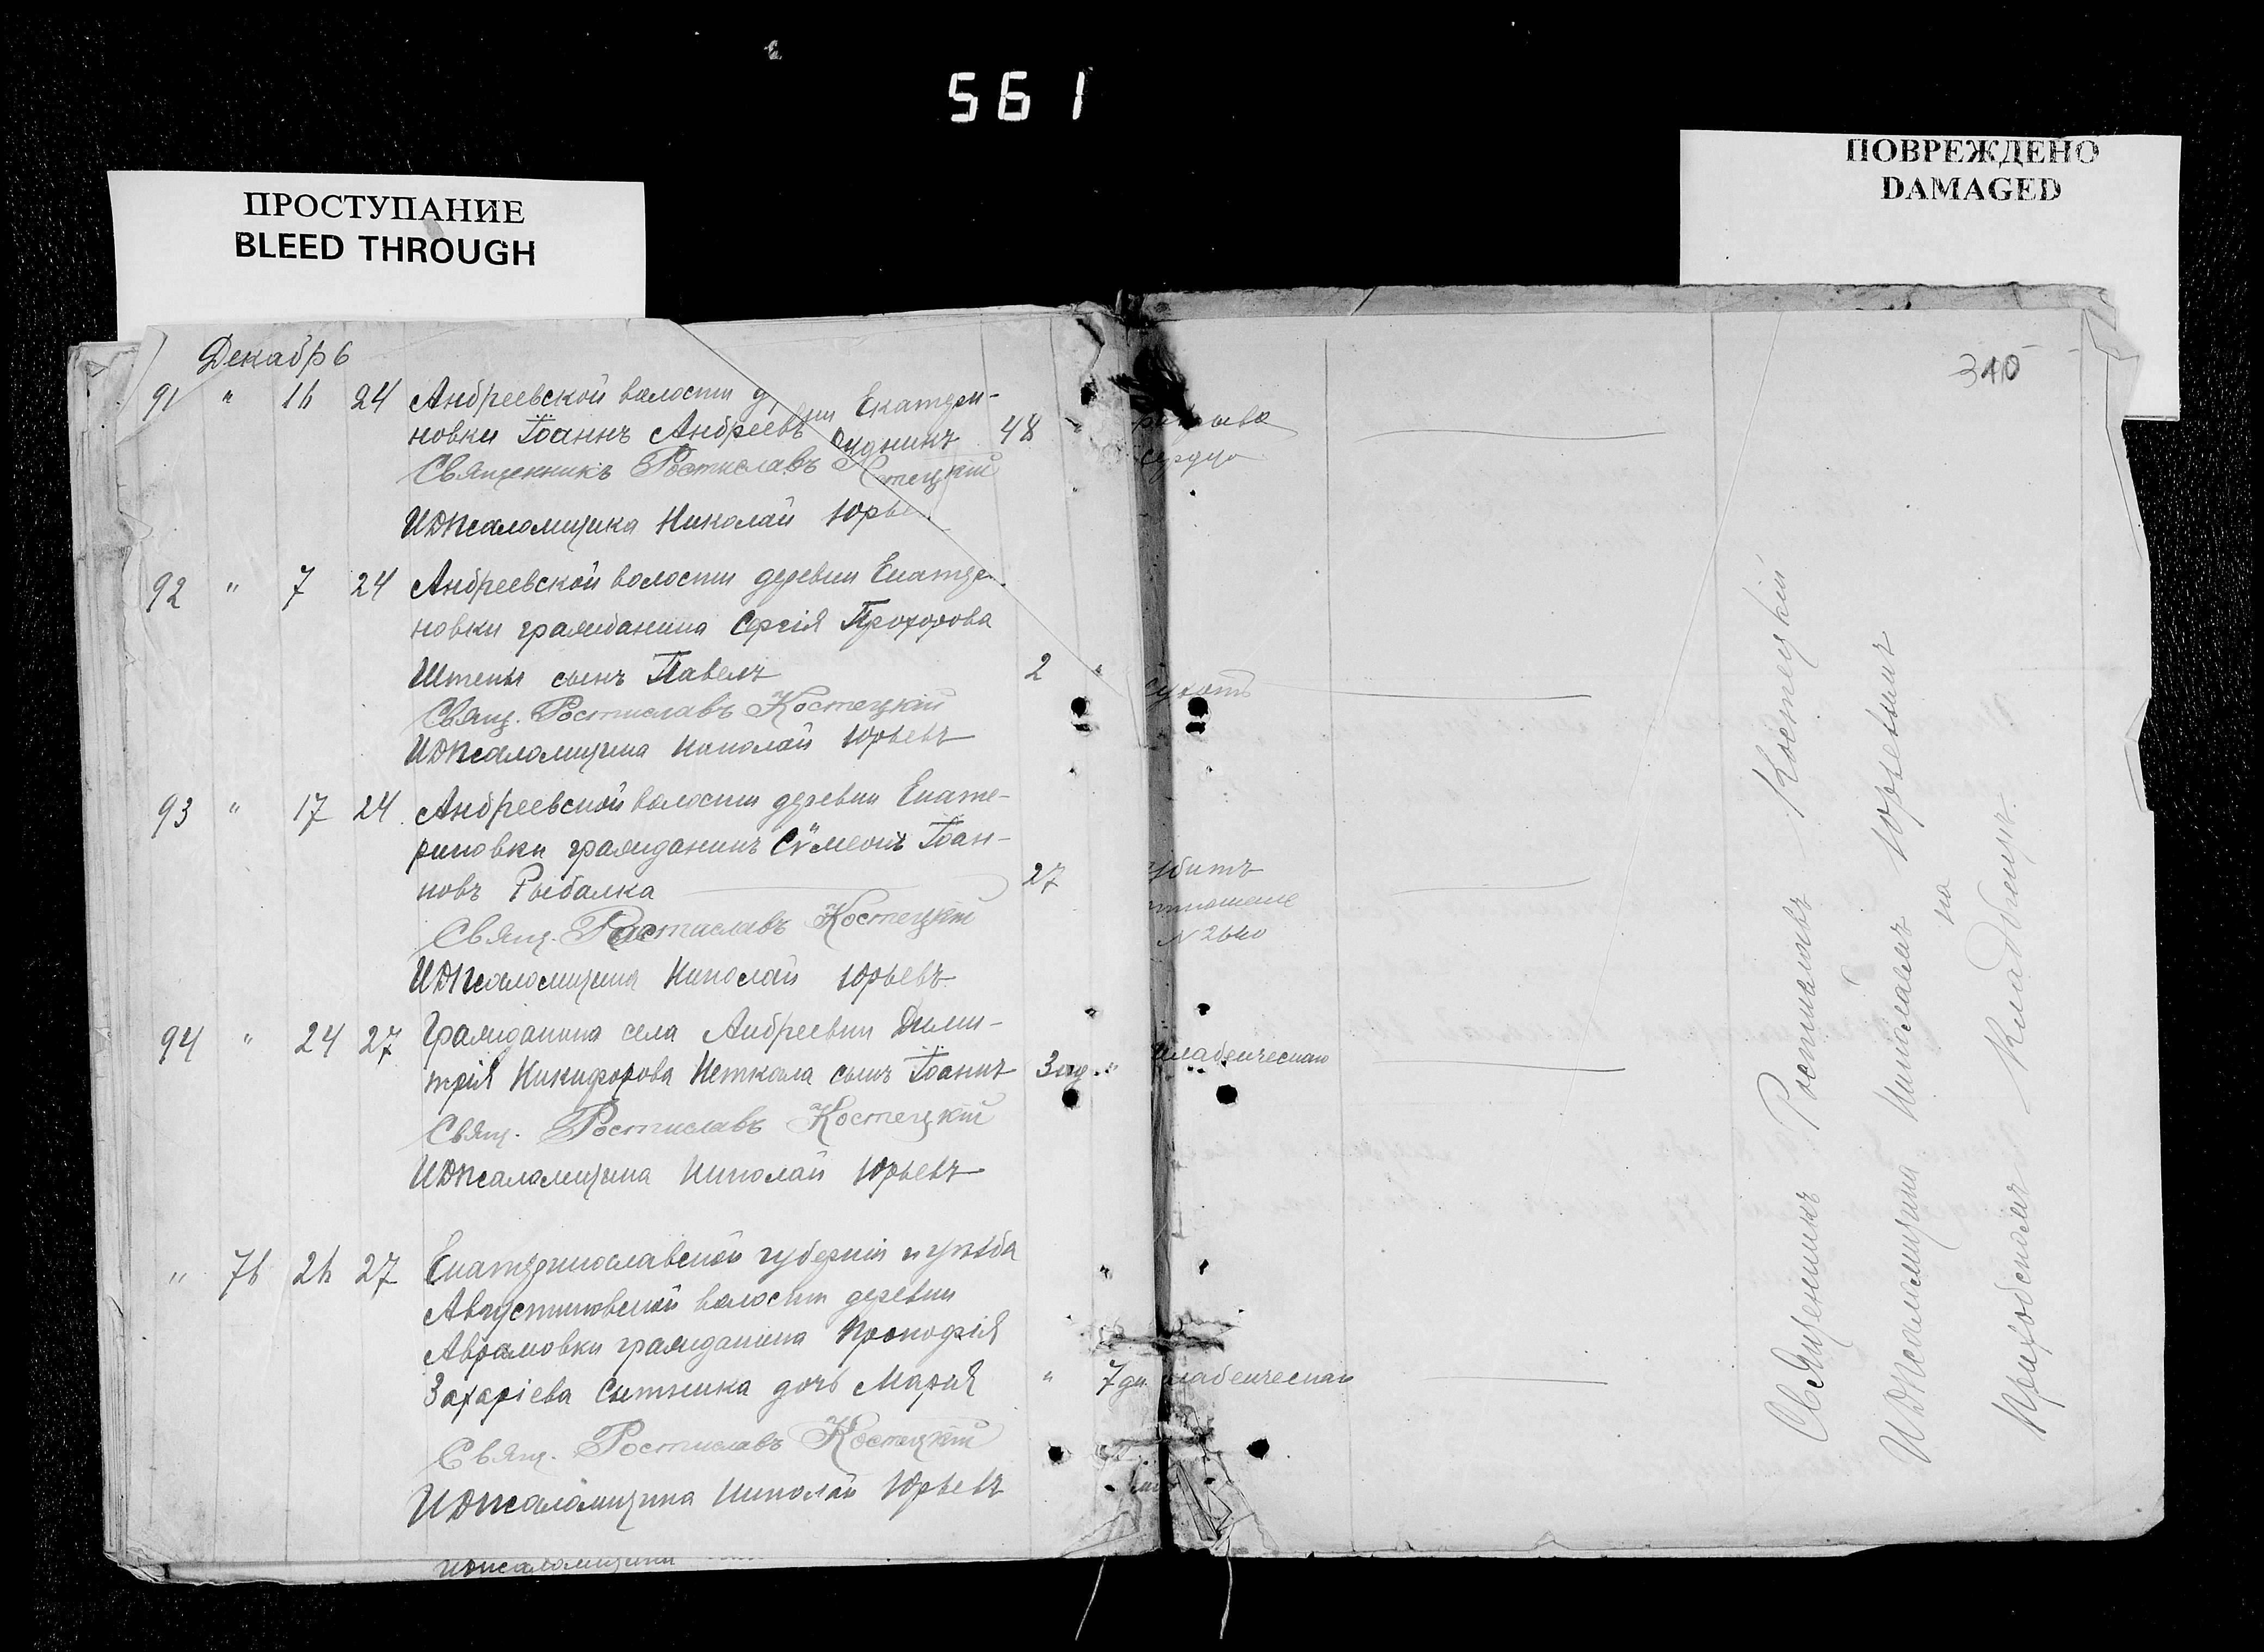 561
ПРОСТУПАНИЕ
BLEED THROUGH
ПОВРЕЖДЕНО
DAMAGED
310
Декабрь
91 " 16 24 Андреевской волости д ни Екатери-
новки Іоаннъ Андреевъ 48 "
сердца
Священникъ Ростиславъ Костецкій
ИДПсаломщика Николай Юрье
92 " 7 24 Андреевской волости деревни Екатери
новки гражданина Сергія Прохорова
Штепы сынъ Павелъ 2 "
Свящ. Ростиславъ Костецкій
ИДПсаломщика Николай Юрьевъ
93 " 17 24 Андреевской волости деревни Екате-
риновки гражданинъ Сѵмеонъ Іоан-
новъ Рыбалка 27 убитъ
отношение
N 2640
Свящ. Ростиславъ Костецкій
ИДПсаломщика Николай Юрьевъ
94 " 24 27 Гражданина села Андреевки Дими-
трія Никифорова Неткала сынъ Іоаннъ 3 " младенческая
Свящ. Ростиславъ Костецкій
ИДПсаломщика Николай Юрьевъ
" 76 26 27 Екатеринославской губерніи и уѣзда
Августиновской волости деревни
Аврамовки гражданина Прокофія
Захаріева Сытника дочь Марія " 7 дн. младенческая
Свящ. Ростиславъ Костецкій
ИДПсаломщика Николай Юрьевъ
ИДПсаломщика
Священникъ Ростиславъ Костецкій
ИДПсаломщика Николаемъ Юрьевымъ
на
Приходскомъ Кладбищѣ.